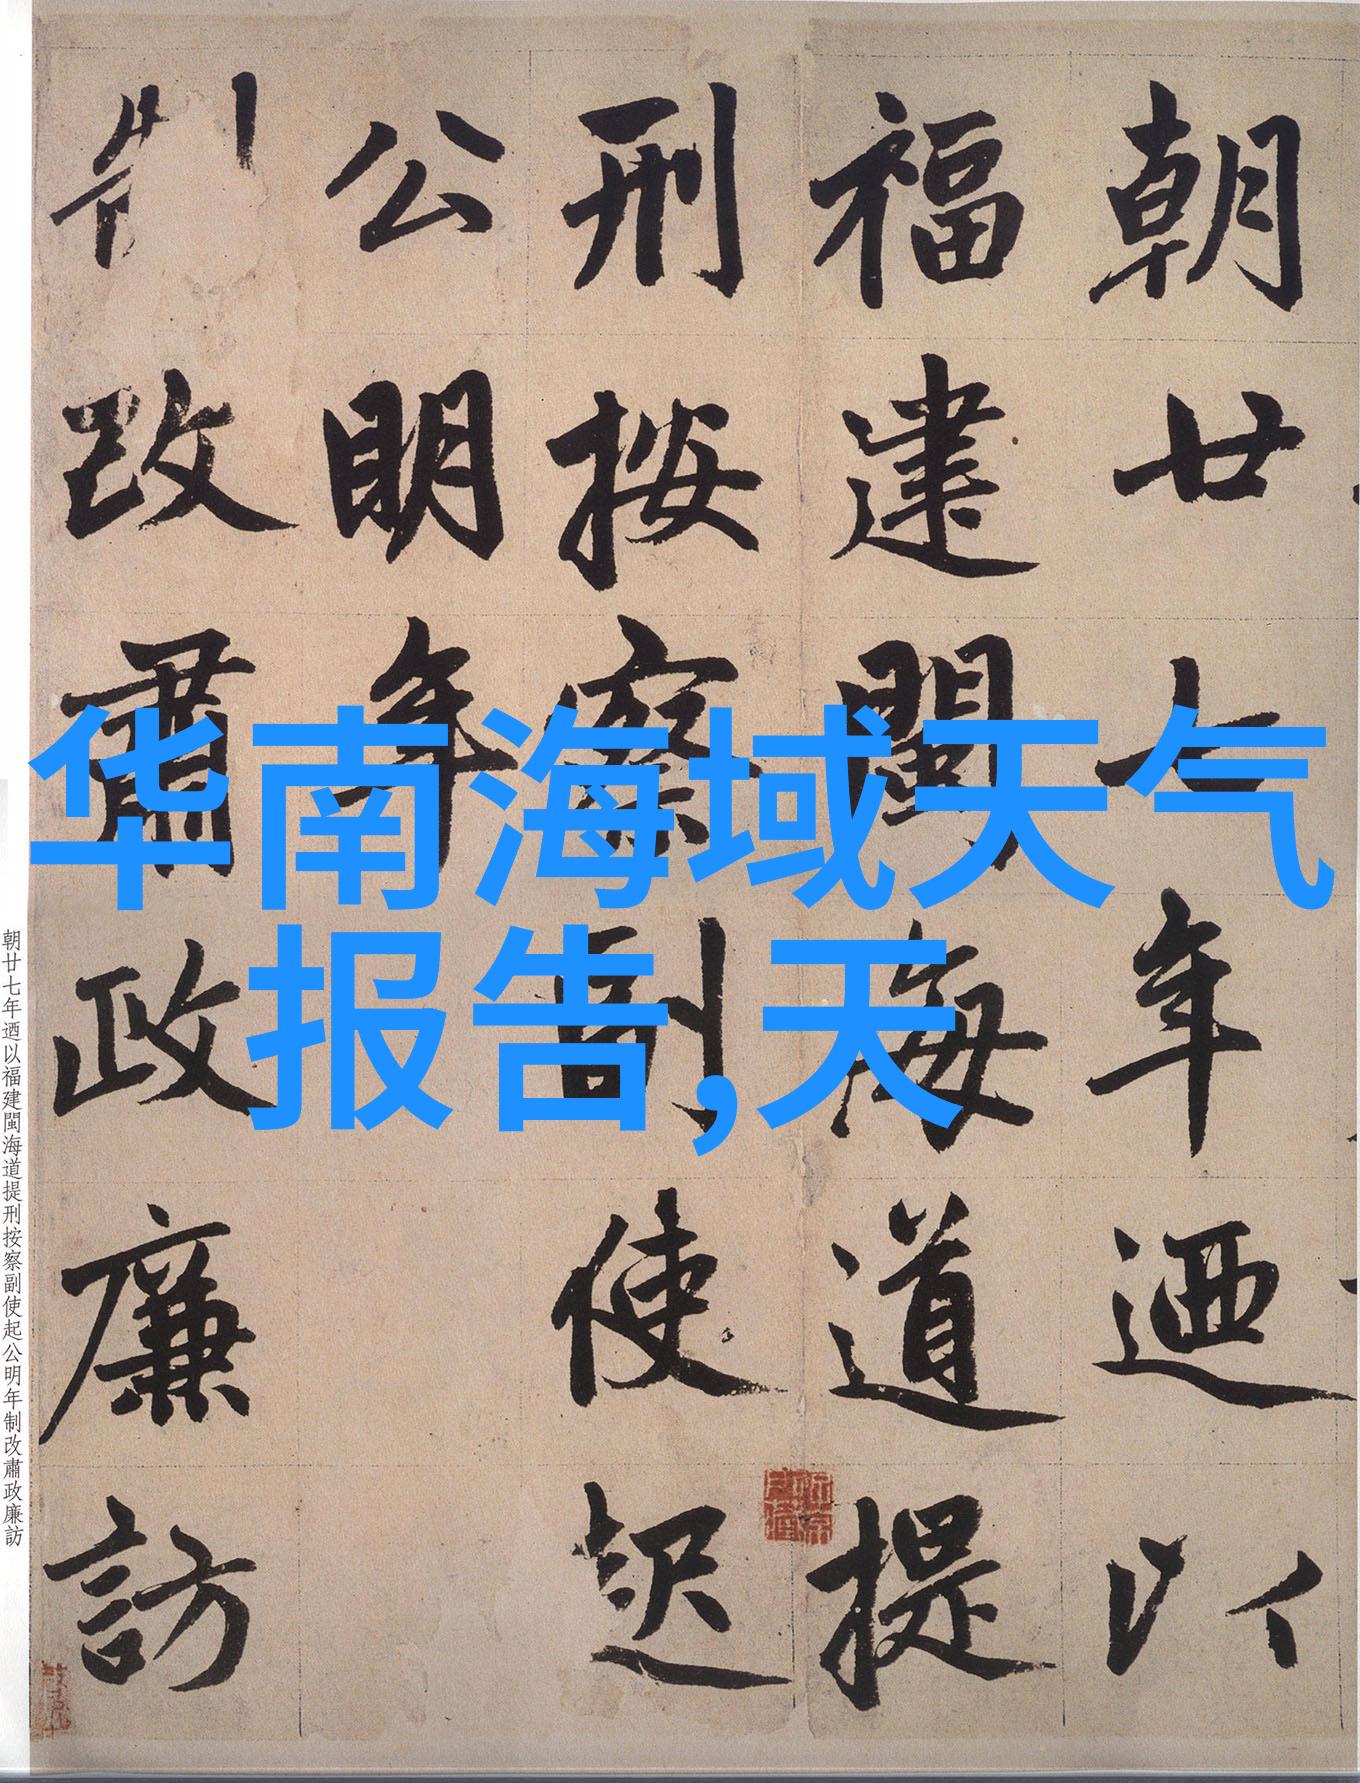 朝廿七年迺以
福建閩海道提
刑按察副使起
公明年
制改肅政廉訪
华南海域天气
报告,天
朝廿七年迺以福建閩海道提刑按察副使起公明年制改肅政廉訪